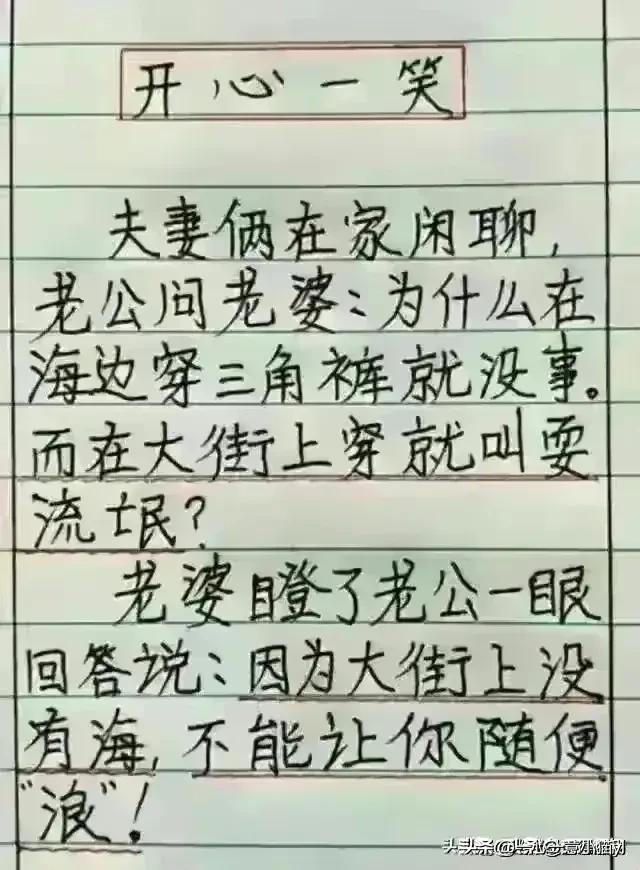 开心一笑
夫妻俩在家闲聊,
老公问老婆:为什么在
海边穿三角裤就没事。
而在大街上穿就叫耍
流氓?
老婆瞪了老公一眼
回答说:因为大街上没
有海,不能让你随便
"浪"!
头条@